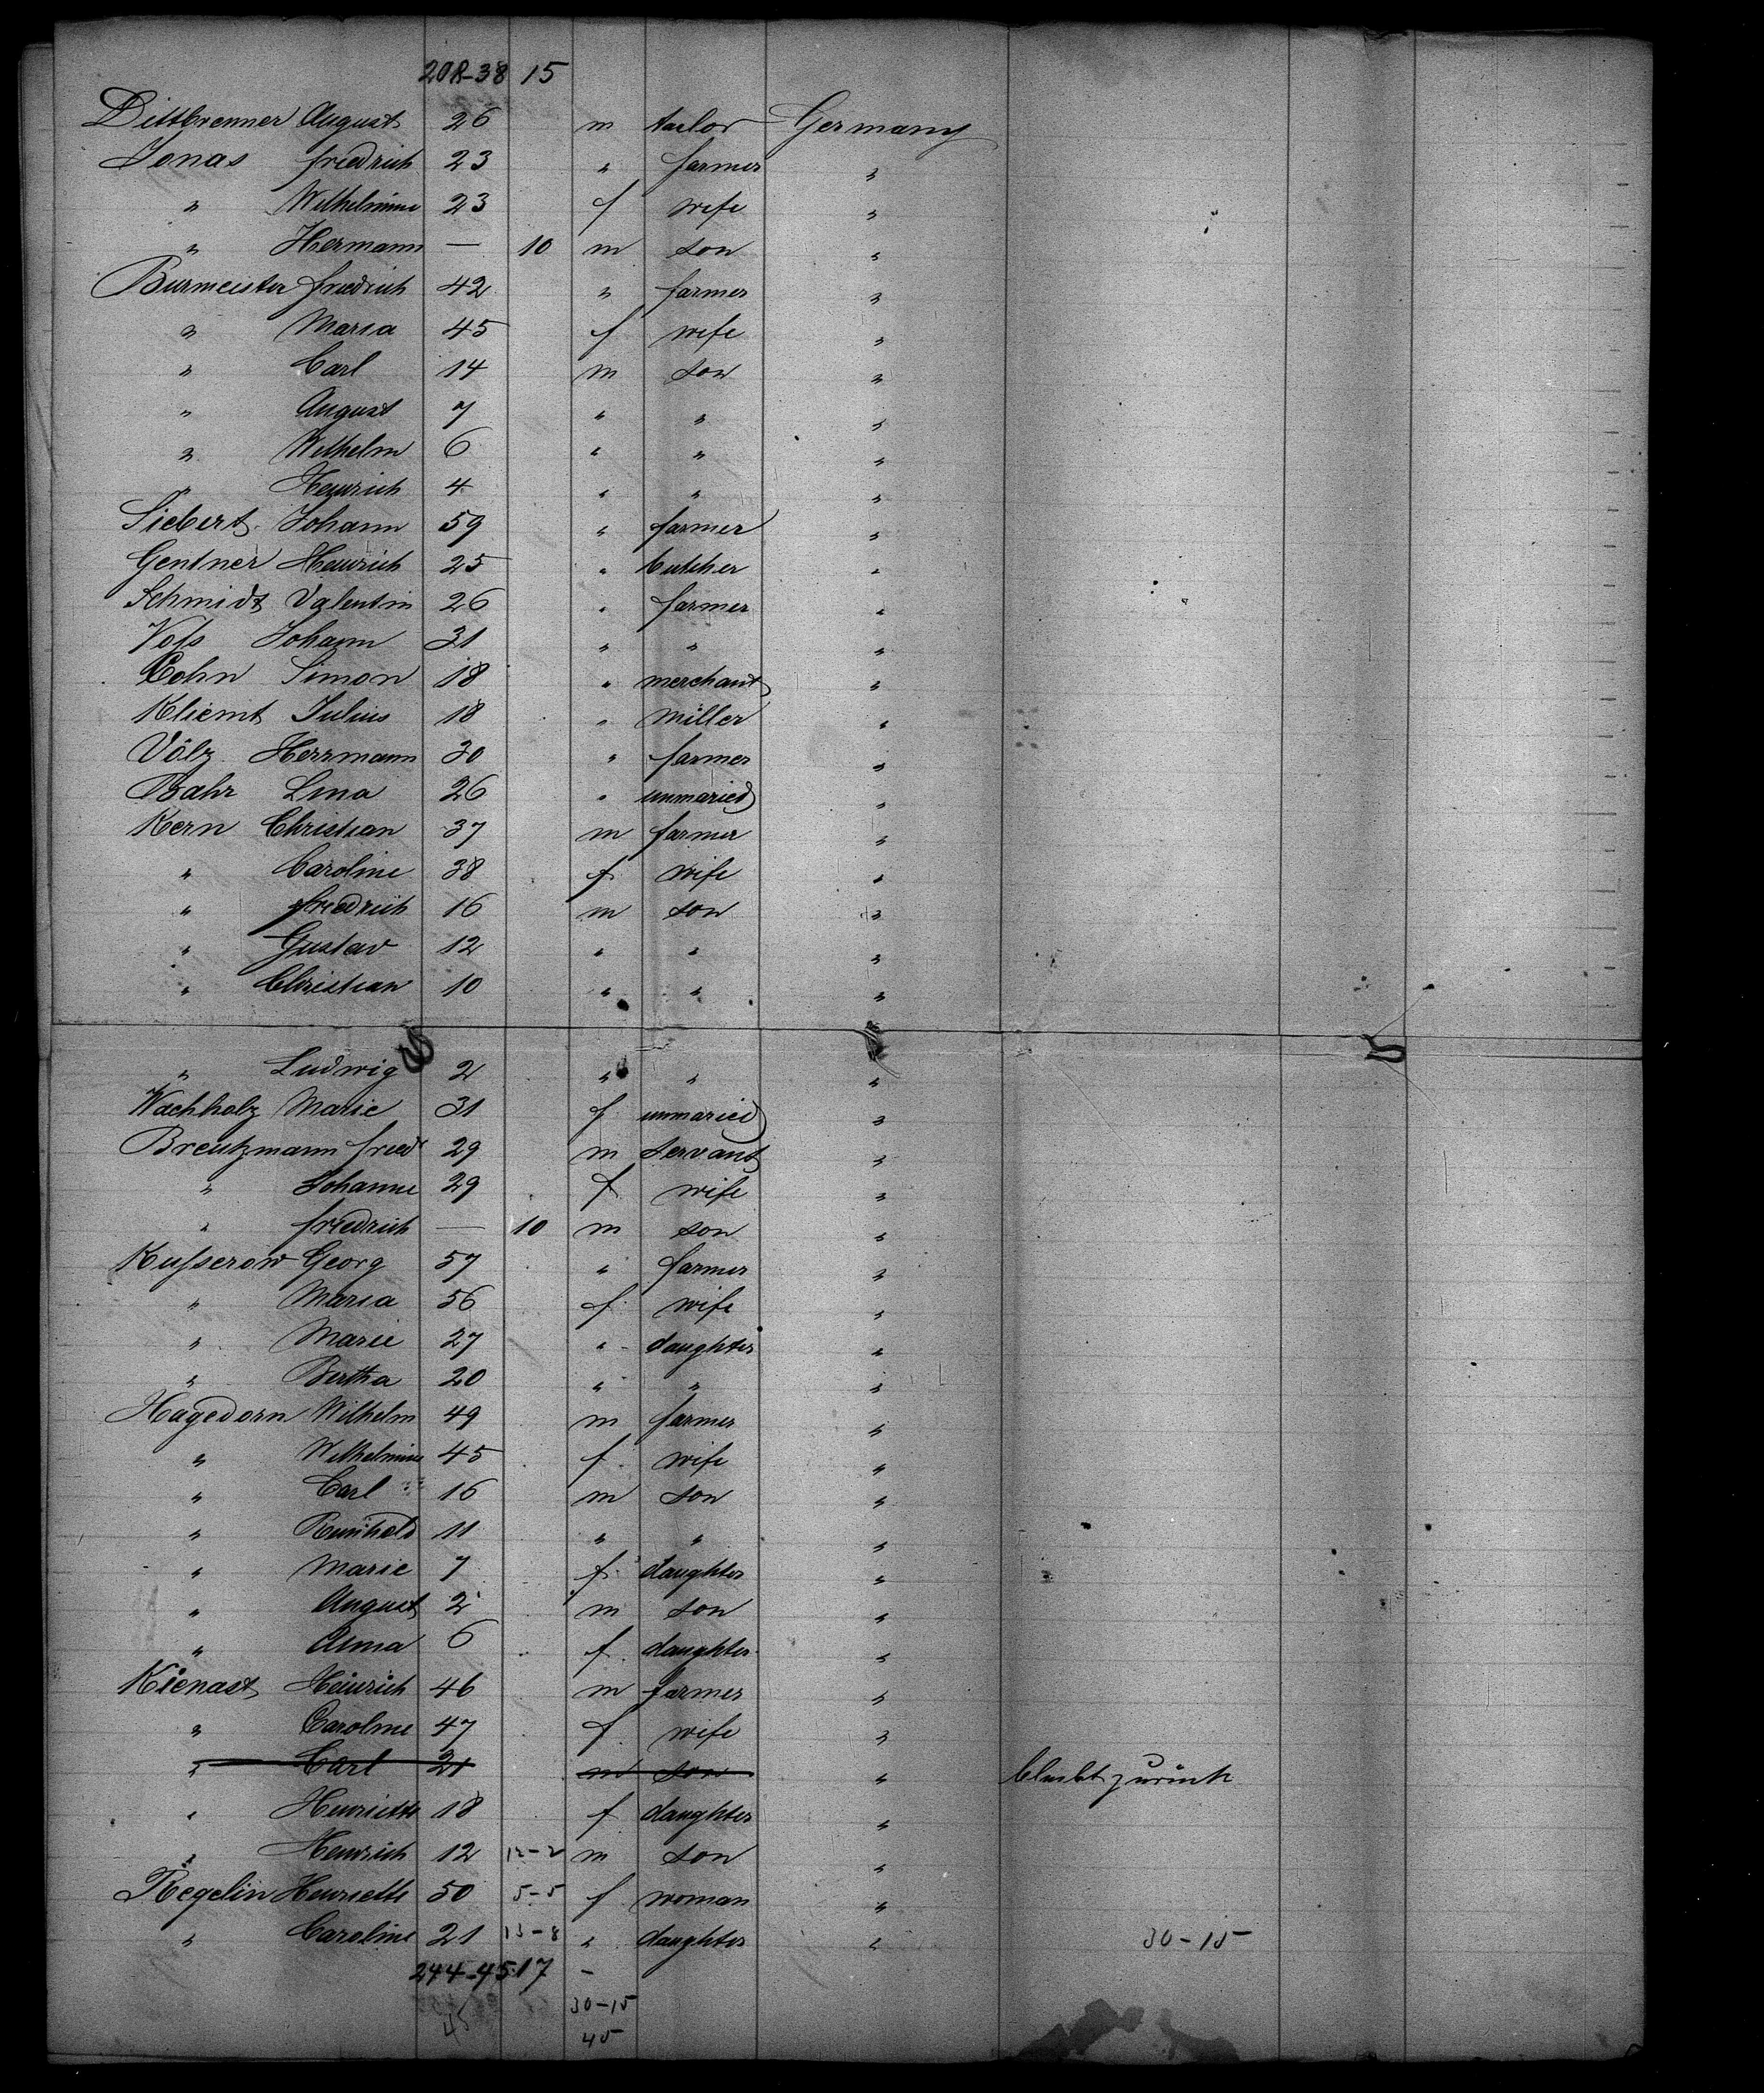 20R-38 15
Dittbrenner August 26 m tailor Germany
Jonas friedrich 23 " farmer "
" Wilhelmine 23 f wife "
" Hermann — 10 m son "
Burmeister friedrich 42 " farmer "
" Maria 45 f wife "
" Carl 14 m son "
" August 7 " " "
" Wilhelm 6 " " "
" Heinrich 4 " " "
Siebert Johann 59 " farmer "
Gentner Heinrich 25 " butcher "
Schmidt Valentin 26 " farmer "
Vols Johann 31 " " "
Cohn Simon 18 " merchant "
Kliemt Julius 18 " miller "
Völz Herrmann 30 " farmer "
Bahr Lina 26 " unmaried "
Kern Christian 37 m farmer "
" Caroline 38 f wife "
" friedrich 16 m son "
" Gustav 12 " " "
" Christian 10 " " "
" Ludwig 2 " " "
Wachholz Marie 31 f unmaried "
Breutzmann fried 29 m servant "
" Johanne 29 f wife "
" friedrich — 10 m son "
Kusserow Georg 57 " farmer "
" Maria 56 f wife "
" Marie 27 " daughter "
" Bertha 20 " " "
Hagedorn Wilhelm 49 m farmer "
" Wilhelmine 45 f wife "
" Carl 16 m son "
" Reinhold 11 " " "
" Marie 7 f daughter "
" August 2 m son "
" Anna 6 f daughter "
Kienast Heinrich 46 m farmer "
" Caroline 47 f wife "
" Carl 21 m son " bleibt zurück
" Henriette 18 f daughter "
" Heinrich 12 12-2 m son "
Regelin Henriette 50 5-5 f woman "
" Caroline 21 13-8 " daughter " 30-15
244-45 17 -
30-15
45 45